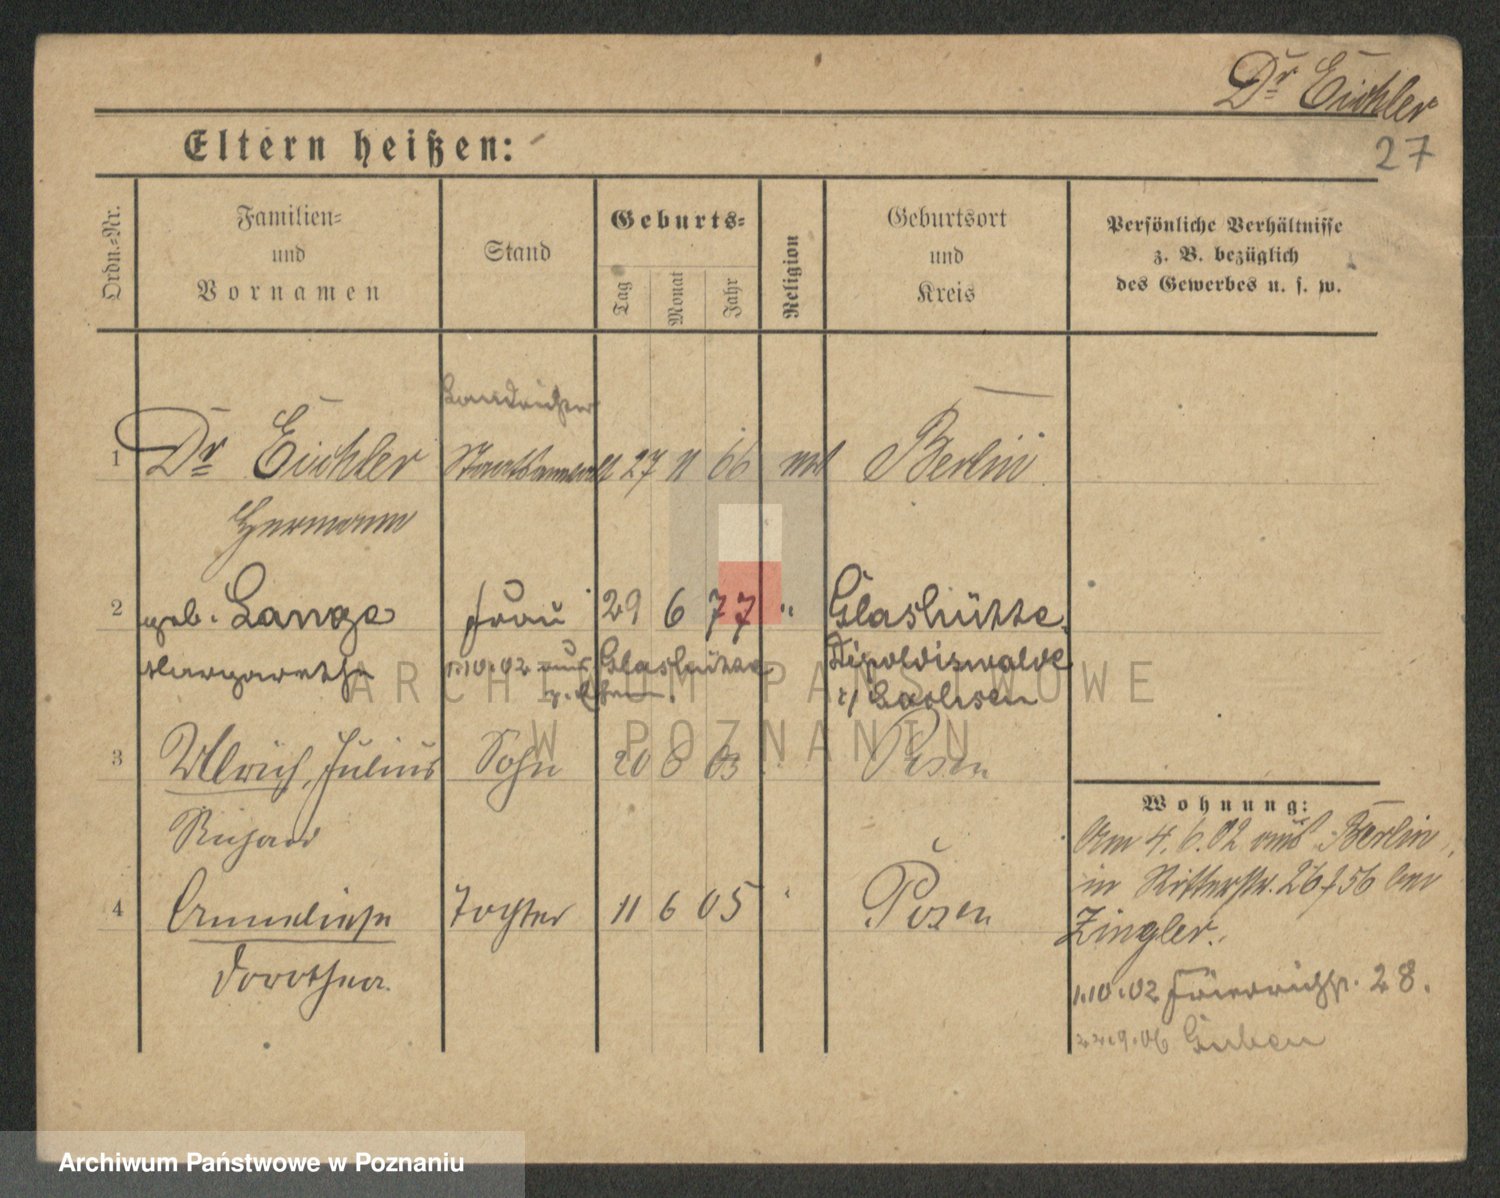 Dr Eichler
27
Eltern heißen:
Ordn.-Nr.
Familien-
und
Vornamen
Stand
Geburts-
Tag
Monat
Jahr
Religion
Geburtsort
und
Kreis
Persönliche Verhältnisse
z. B. bezüglich
des Gewerbes u. s. w.
Landrichter
1 Dr Eichler Staatsanwalt 27 11 66 Berlin
Hermann
2 geb. Lange Frau 29 6 77 " Glashütte
Margarethe 1.10.02 aus Glashütte Dipoldiswalde
i/ Sachsen
3 Ulrich, Julius Sohn 20 6 03 Posen
Richard
4 Anneliese Tochter 11 6 05 Posen
Dorothea.
Wohnung:
Am 4.6.02 aus Berlin,
in Ritterstr. 26/56 bei
Zingler.
1.10.02 Friedrichstr. 28.
9.06 Guben
ARCHIWUM PAŃSTWOWE
W POZNANIU
Archiwum Państwowe w Poznaniu